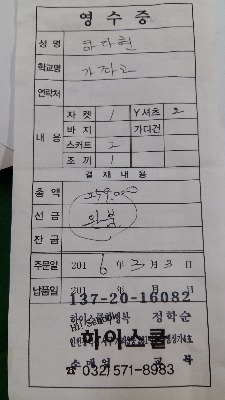 영수증
성 명
학교명
연락처
내 용
자 켓 1 Y셔츠 2
바 지 가디건
스커트 2
조 끼 1
결 제 내 용
총 액
선 금 완불
잔 금
주문일 201 6 年 3 月 3 日
납품일 201 年 月 日
137-20-16082
하이스쿨학생복 정학순
하이스쿨
☎ 032)571-8983